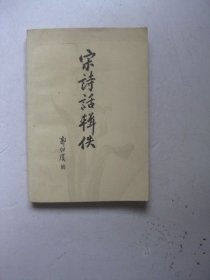 宋詩話輯佚
郭绍虞 輯